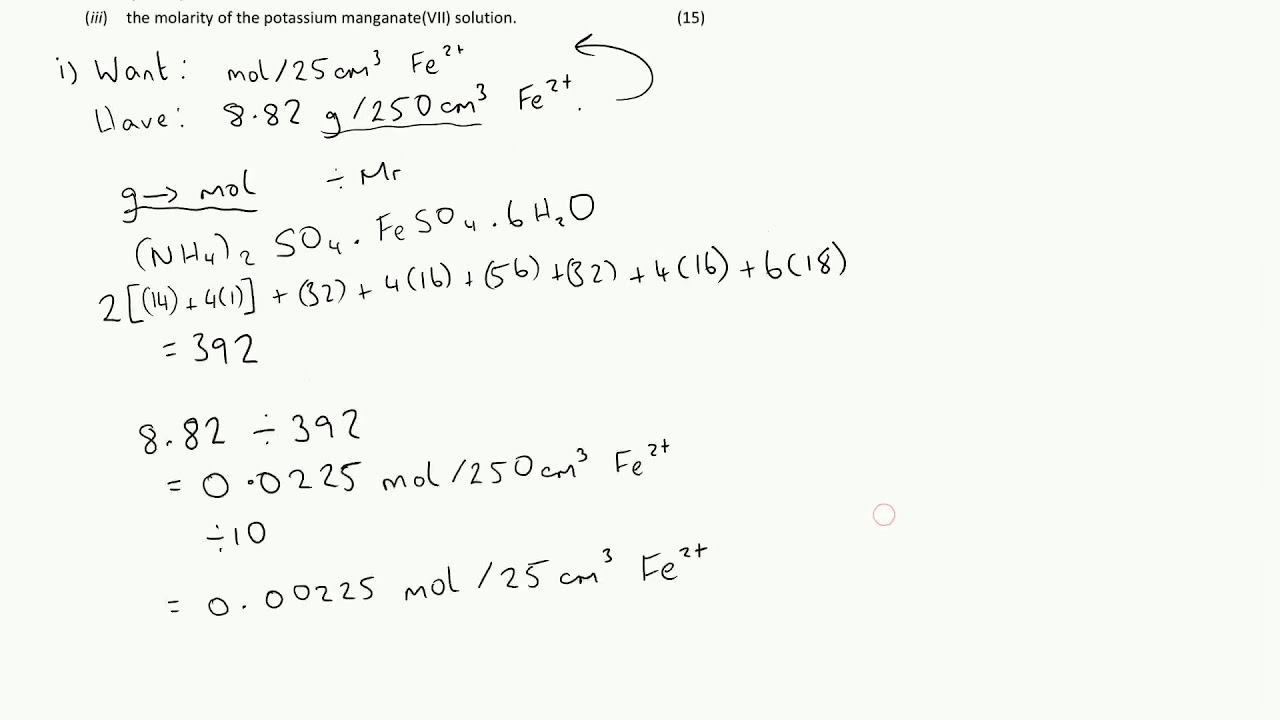 (iii) the molarity of the potassium manganate(VII) solution. (15)
i) Want: mol/25cm³ Fe²⁺
Have: 8.82 g/250cm³ Fe²⁺.
g→ mol ÷ Mr
(NH₄)₂ SO₄ . FeSO₄ . 6H₂O
2[(14)+4(1)] + (32) + 4(16) + (56) + (32) + 4(16) + 6(18)
= 392
8.82 ÷ 392
= 0.0225 mol/250cm³ Fe²⁺
÷10
= 0.00225 mol/25cm³ Fe²⁺